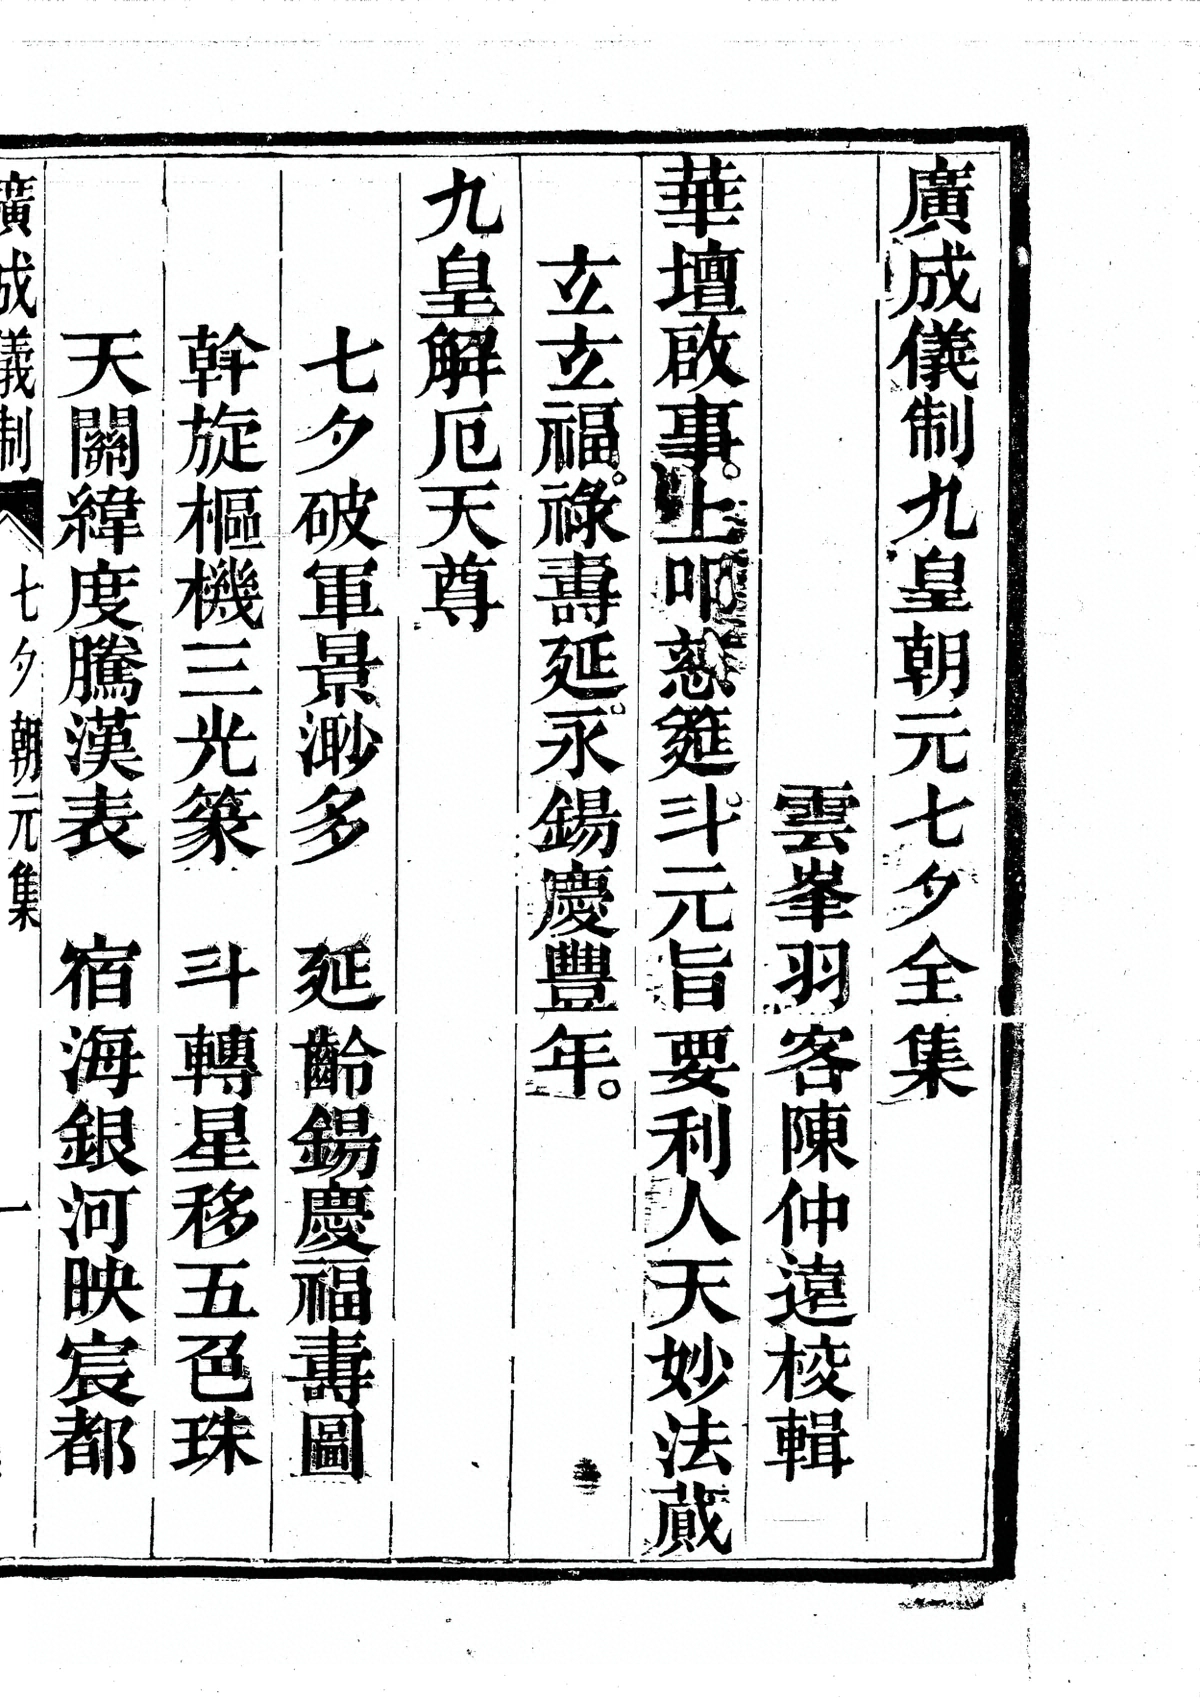 廣成儀制九皇朝元七夕全集
雲峯羽客陳仲遠校輯
華壇啟事。上叩慈筵斗元旨要利人天妙法蔵
玄玄福。祿壽延。永錫慶豐年。
九皇解厄天尊
七夕破軍景渺多　延齡錫慶福壽圖
斡旋樞機三光篆　斗轉星移五色珠
天關緯度騰漢表　宿海銀河映宸都
廣成儀制　七夕朝元集　一